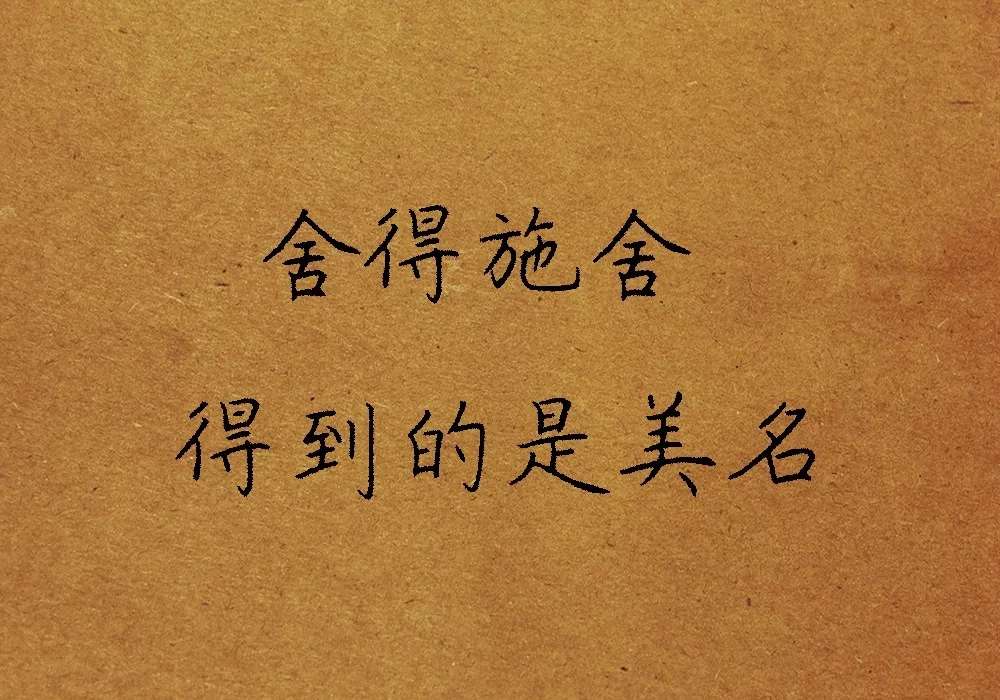 舍得施舍
得到的是美名